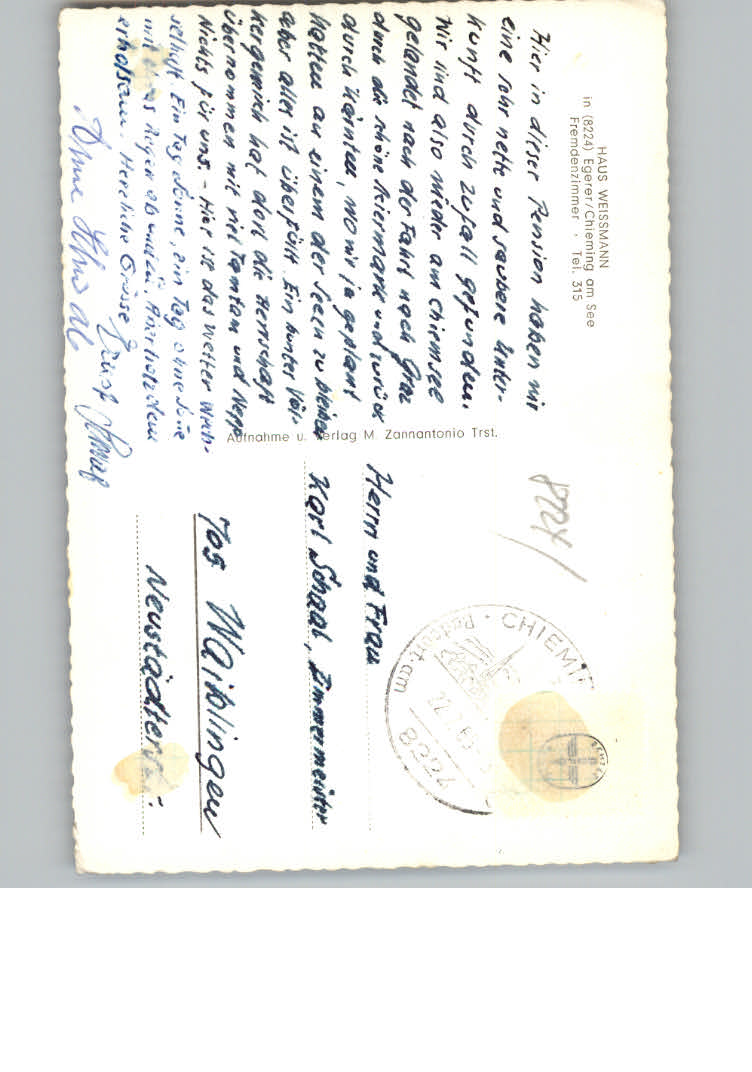 HAUS WEISSMANN
in (8224) Egerer/Chieming am See
Fremdenzimmer · Tel. 315
Hier in dieser Pension haben wir
eine sehr nette und saubere Unter-
kunft durch Zufall gefunden.
Wir sind also wieder am Chiemsee
gelandet nach der Fahrt nach Graz
durch die schöne Steiermark und zurück
durch Kärnten, wo wir ja geplant
hatten an einem der Seen zu bleiben
aber alles ist überfüllt. Ein bunter Völ-
kergemisch hat dort die Herrschaft
übernommen mit viel Tamtam und Nepp
Nichts für uns. - Hier ist das Wetter wech-
selhaft. Ein Tag Sonne, ein Tag ohne Sonne
mit etwas Regen ab und zu. Aber trotzdem
erholsam. Herzliche Grüsse
Aufnahme u. Verlag M. Zannantonio Trst.
8224/
CHIEMING
8224
Herrn und Frau
Karl Schaal, Zimmermeister
705 Waiblingen
Neustädterstr.